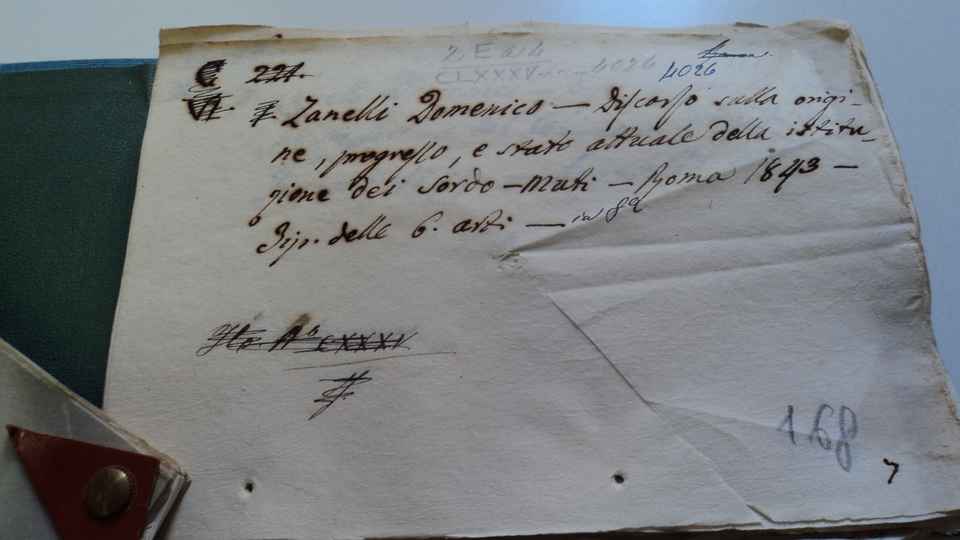 221.
4026
CLXXXV 4026
Zanelli Domenico — Discorso sulla origi-
ne, progresso, e stato attuale della istitu-
zione dei Sordo-Muti — Roma 1843 —
Tip. delle B. arti — in 8º
CXXXV
168
7